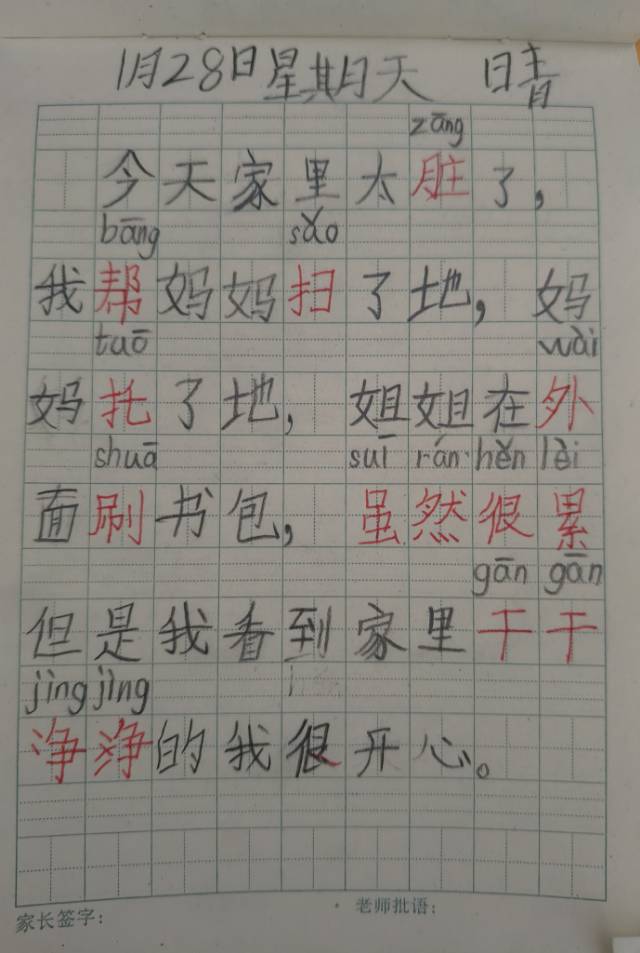 1月28日星期天 晴
zāng
今天家里太脏了，
bāng sǎo
我帮妈妈扫了地，妈
tuō wài
妈托了地，姐姐在外
shuā suī rán hěn lèi
面刷书包，虽然很累
gān gān
但是我看到家里干干
jìng jìng
净净的我很开心。
家长签字： 老师批语：